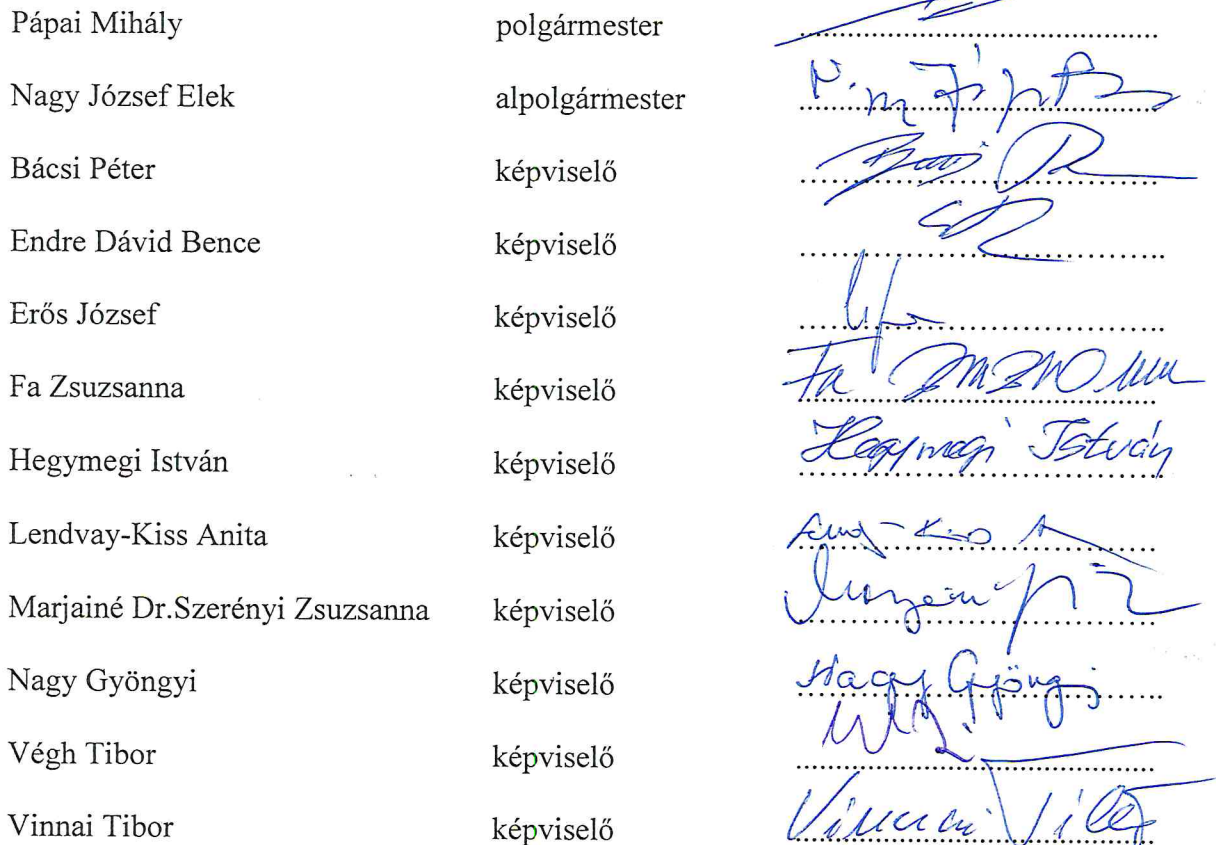 Pápai Mihály polgármester
Nagy József Elek alpolgármester
Bácsi Péter képviselő
Endre Dávid Bence képviselő
Erős József képviselő
Fa Zsuzsanna képviselő Fa
Hegymegi István képviselő Hegymegi István
Lendvay-Kiss Anita képviselő
Marjainé Dr.Szerényi Zsuzsanna képviselő
Nagy Gyöngyi képviselő Nagy Gyöngyi
Végh Tibor képviselő
Vinnai Tibor képviselő Vinnai Tibor